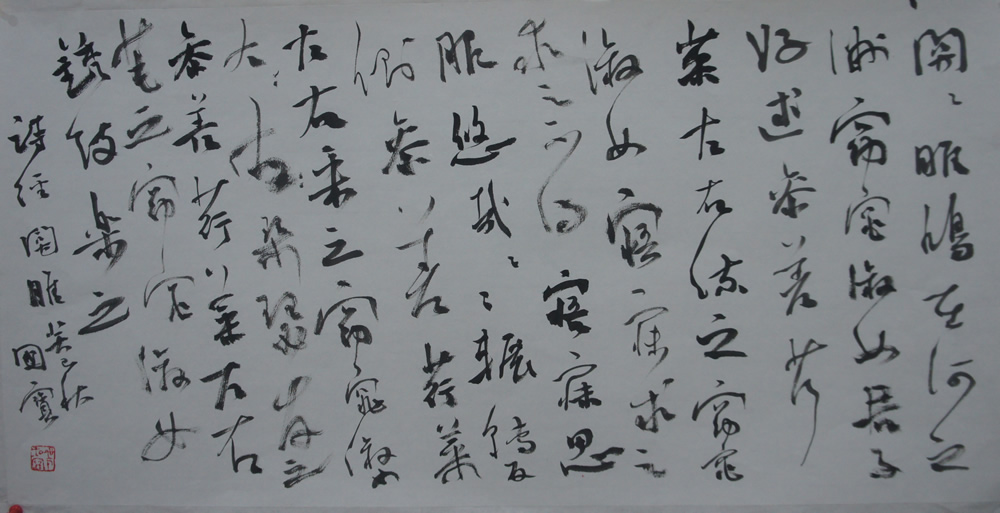 關〻雎鳩在河之
洲窈窕淑女君子
好逑參差荇
菜左右流之窈窕
淑女寤寐求之
求之不得寤寐思
服悠哉〻〻輾轉反
側參差荇菜
左右采之窈窕淑女
琴瑟友之
參差荇菜左右
芼之窈窕淑女
鐘鼓樂之
詩經關雎癸巳秋
國寶